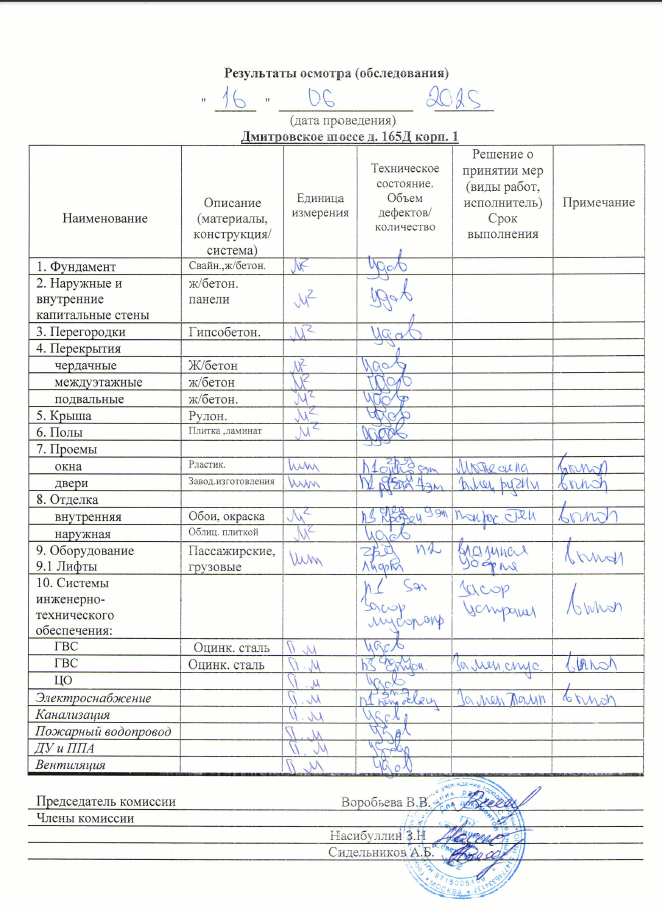 Результаты осмотра (обследования)
" 16 " 06 2025
(дата проведения)
Дмитровское шоссе д. 165Д корп. 1
Наименование Описание (материалы, конструкция/ система) Единица измерения Техническое состояние. Объем дефектов/ количество Решение о принятии мер (виды работ, исполнитель) Срок выполнения Примечание
1. Фундамент Свайн.,ж/бетон. м2 удов
2. Наружные и внутренние капитальные стены ж/бетон. панели м2 удов
3. Перегородки Гипсобетон. м2 удов
4. Перекрытия
чердачные Ж/бетон м2 удов
междуэтажные ж/бетон м2 удов
подвальные ж/бетон. м2 удов
5. Крыша Рулон. м2 удов
6. Полы Плитка ,ламинат м2 удов
7. Проемы
окна Рластик. шт п1 вып
двери Завод.изготовления шт замен ручки вып
8. Отделка
внутренняя Обои, окраска м2 п3 вып
наружная Облиц. плиткой м2 удов
9. Оборудование
9.1 Лифты Пассажирские, грузовые шт гряз п2 лифт влажная уборка вып
10. Системы инженерно-технического обеспечения: п1 5эт засор мусоропр засор устранен вып
ГВС Оцинк. сталь П.м удов
ГВС Оцинк. сталь П.м п3 вып
ЦО П.м удов
Электроснабжение П.м п1 замен ламп вып
Канализация П.м удов
Пожарный водопровод П.м удов
ДУ и ППА П.м удов
Вентиляция П.м удов
Председатель комиссии Воробьева В.В.
Члены комиссии
Насибуллин З.Н
Сидельников А.Б.